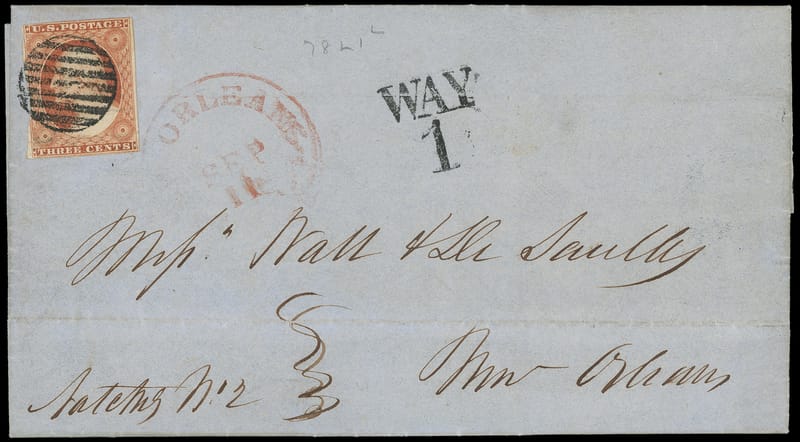 U.S. POSTAGE
THREE CENTS
ORLEANS
SEP
11
WAY
1
Messrs. Wall & De Saulles
New Orleans
Natchez No 2